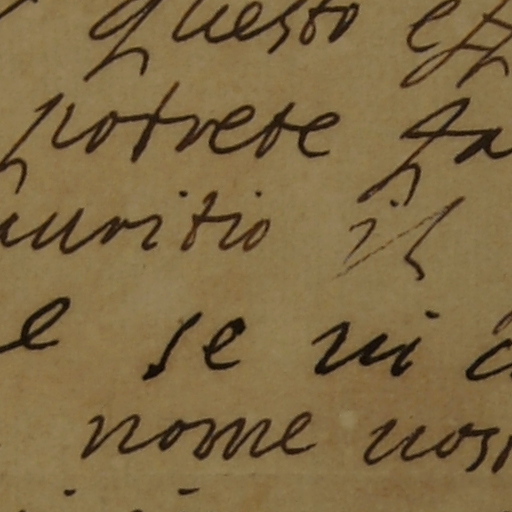 questo eff
potrete fa
auritio il
e se vi
nome nost